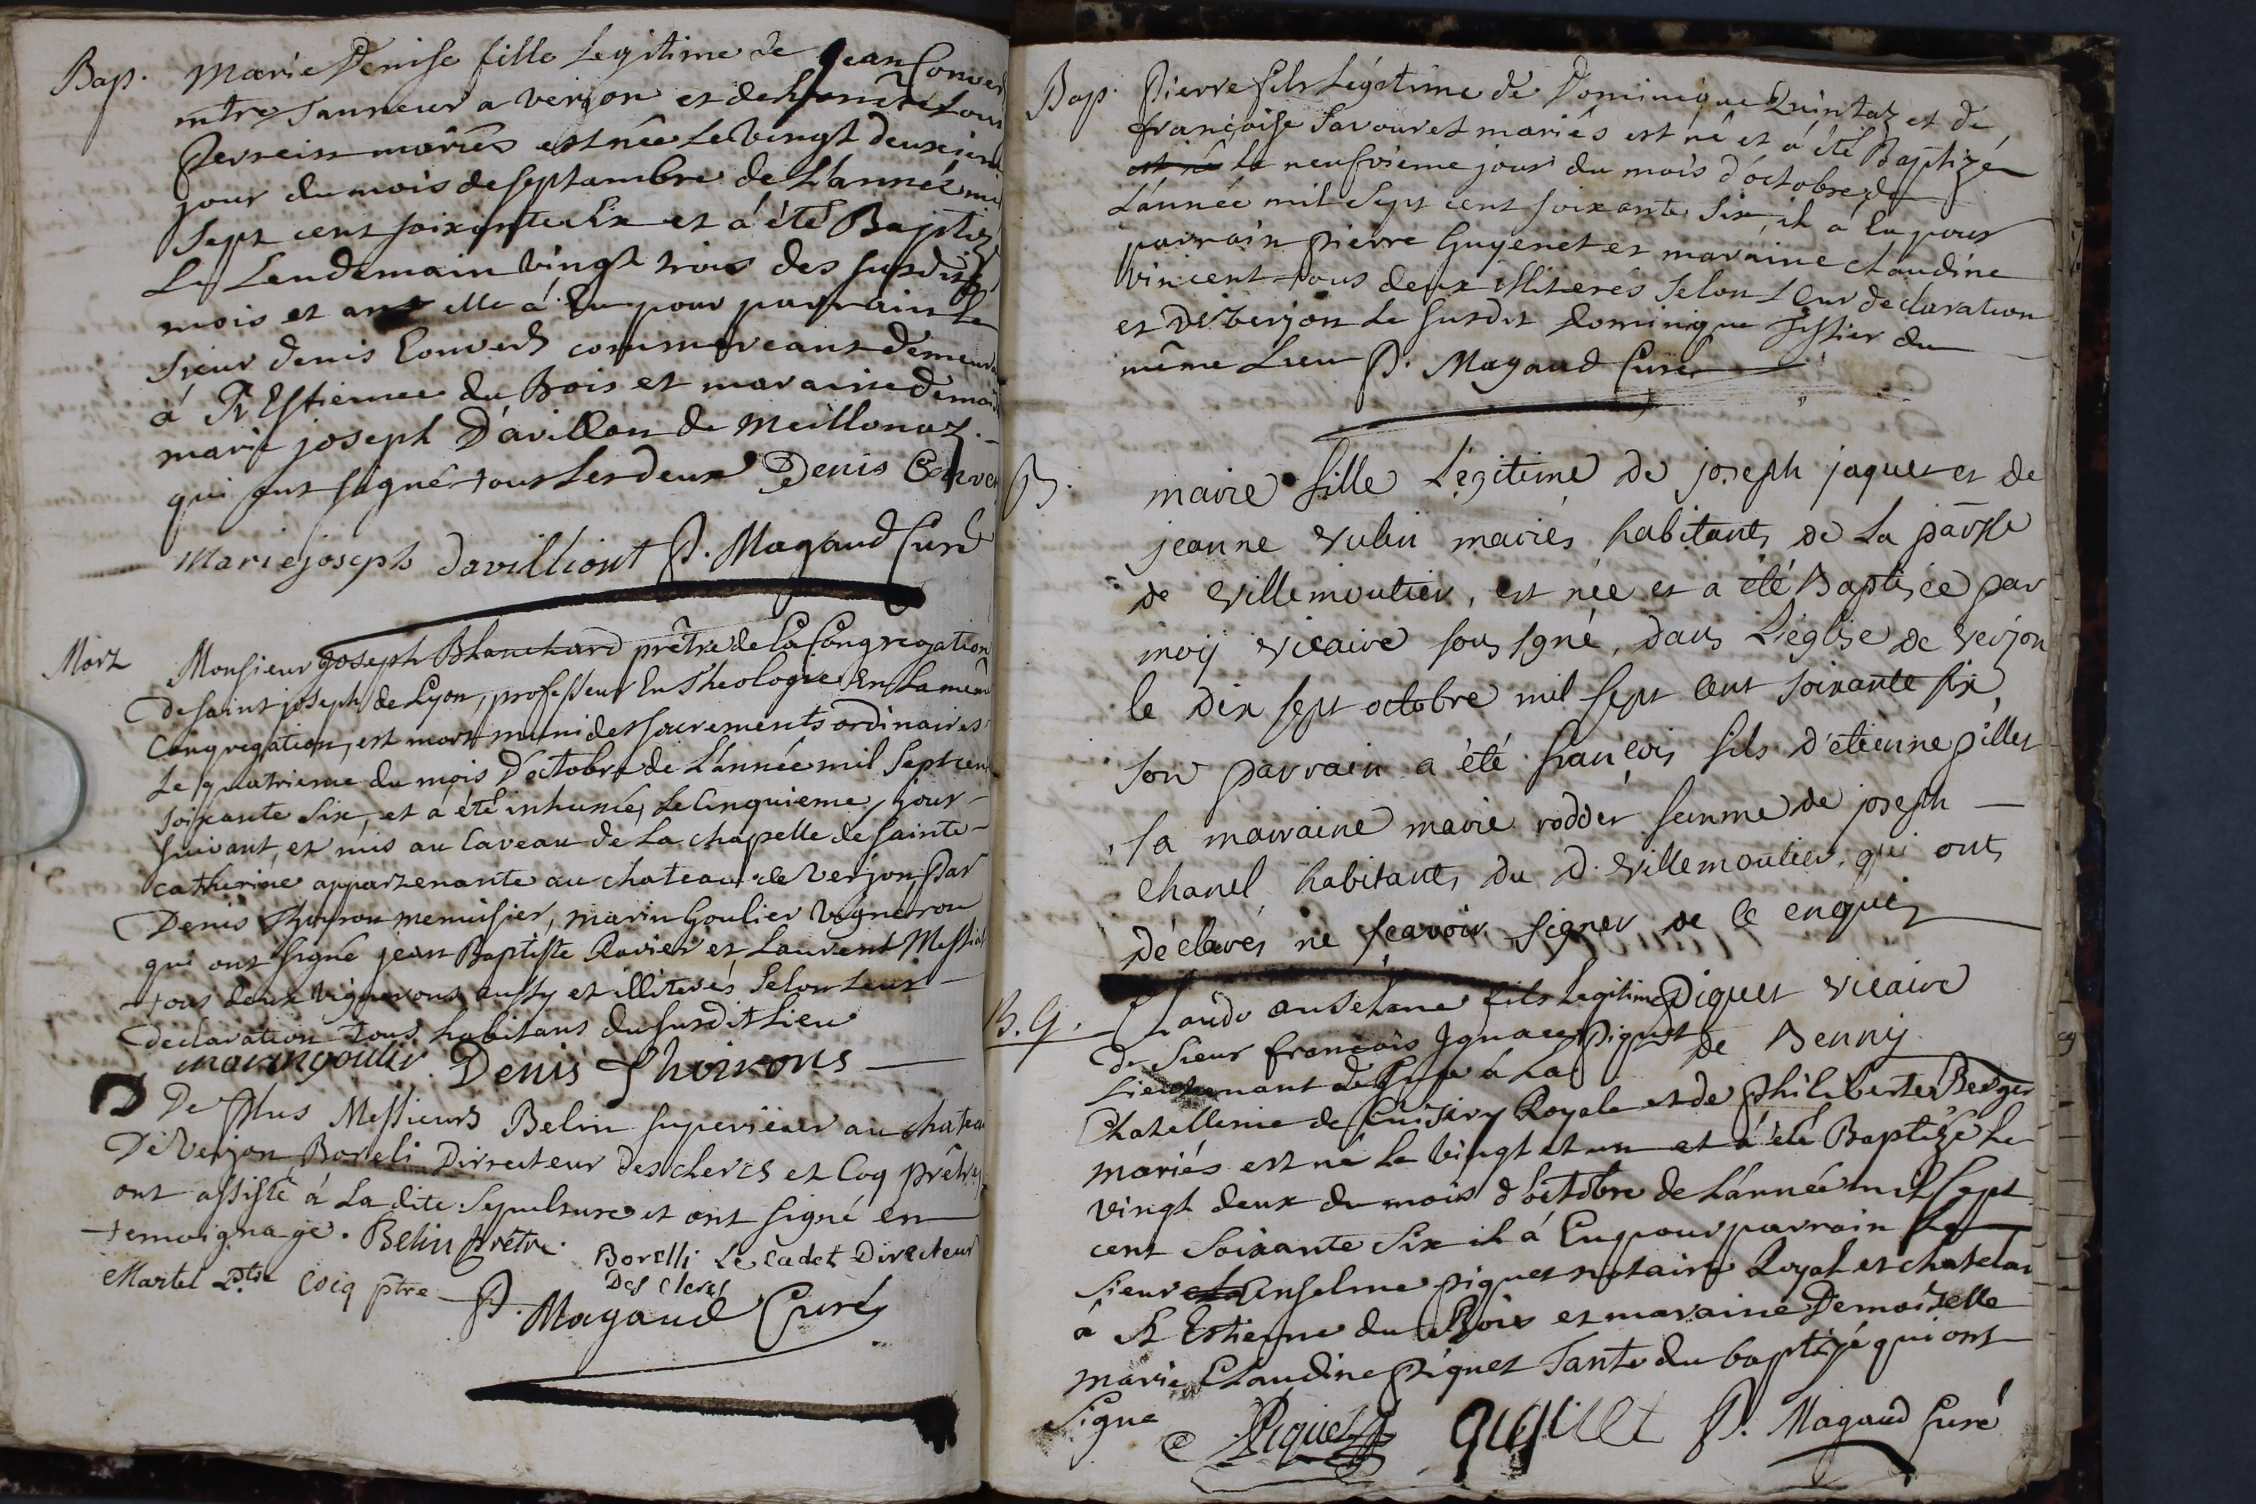 Bap. Marie Denise fille Legitime de Jean Conver
mtre Tanneur a verjon et de
Perrein mariés est née Le vingt deuxieme
jour du mois de septambre de L'année mil
sept cent soixante Six et á été Baptiz
Le Lendemain vingt trois des susdits
mois et ans elle á Eu pour parrain Le
sieur denis Convers commerceant demeura
á St Estienne du Bois et maraine Demoi
marie joseph D'avillon de Meillonaz.
qui ont signé tous Les deux Denis Conver
Marie joseph davilliont P. Magaud Curé
Mort Monsieur Joseph Blanchard prêtre de La Congregation
de saint joseph de Lyon, professeur En Theologie En La mem
Congregation, est mort muni des sacrements ordinaires
Le quatrieme du mois D'octobre de L'année mil Sept cen
soixante Six, et a été inhumé, Le Cinquieme jour
suivant, et mis au Caveau de La chapelle de sainte
catherine appartenante au chateau de Verjon, Par
Denis Thoiron menuisier, marin Goulier Vigneron
qui ont signé jean Baptiste Ravier et Laurent Messia
tous deux vignerons aussy et illiterés Selon Leur
declaration tous habitans du susdit Lieu
marin goulier. Denis Thoirons
De Plus Messieurs Belin superieur au chatea
De Verjon, Boreli Dirrecteur des clercs et Coq prêtres
ont assisté á La dite Sepulture et ont signé en
temoignage. Belin prêtre. Borelli Le Cadet Directeur
Des Clercs
Martel Ptre Cocq ptre P. Magaud Curé
Bap. Pierre fils Légitime de Dominique Quintaz et de
françoise Savouret mariés est né et á été Baptizé
est né Le neufvieme jour du mois d'octobre de
L'année mil Sept cent soixante Six, il á Eu pour
parrain Pierre Guyenet et maraine claudine
vincent tous deux illiterés Selon Leur declaration
et de verjon Le susdit dominique Tissier du
même Lieu P. Magaud Curé
B. marie fille Légitime de joseph jaquet et de
jeanne vulin mariés habitants de La parsse
de villemoutier, est née et a été Baptisée par
moy vicaire sousigné, dans L'église de verjon
le dix sept octobre mil sept cent soixante six,
son parrain a été françois fils d'etienne pillet
sa marraine marie rodder femme de joseph
chanel, habitants du d. villemoutier, qui ont
déclarés ne sçavoir signer de ce enquis
Piquet vicaire
de Benny
B. G. Claude anselme fils Legitime
de Sieur françois Ignace Piquet
Lieutenant de juge á La
Chatellenie de Cuisery Royale et de Philiberte Berger
mariés est né Le vingt et un et á été Baptizé Le
vingt deux du mois d'octobre de L'année mil Sept
cent Soixante Six il á Eu pour parrain Le
Sieur Anselme piquet notaire Royal et chatelai
á St Estienne du Bois et maraine Demoiselle
marie Claudine Piquet Tante du baptizé qui ont
Signe Piquet piquet P. Magaud Curé